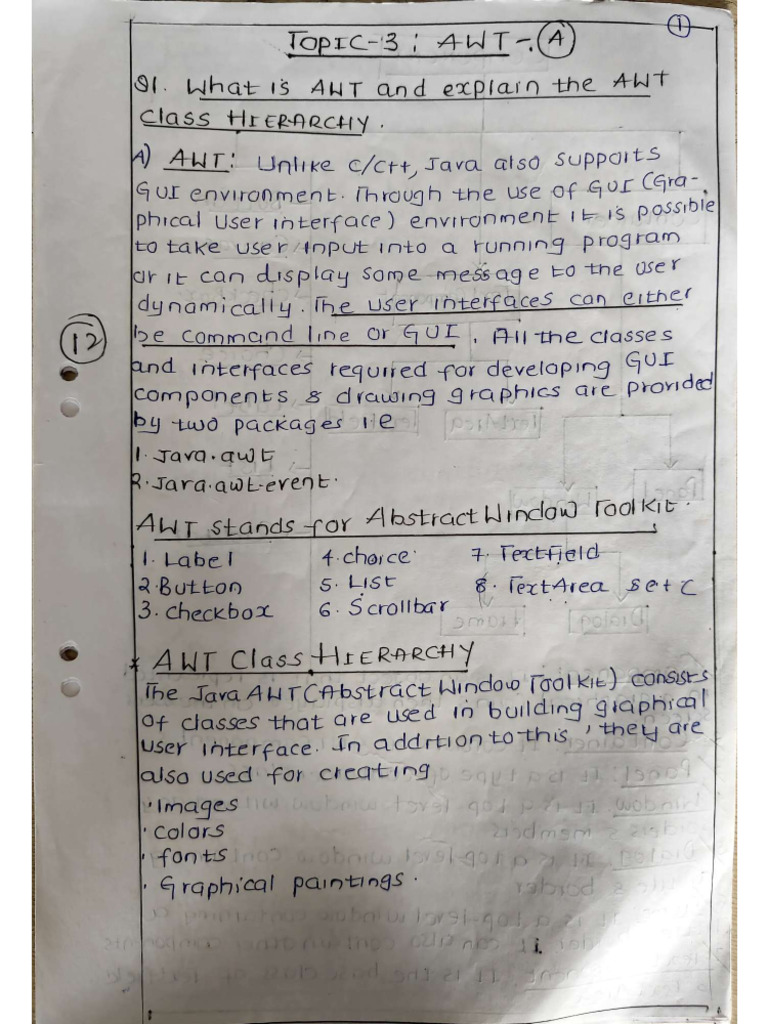 1
TOPIC-3: AWT-. A
Q1. What is AWT and explain the AWT
Class HIERARCHY.
A) AWT: Unlike C/C++, Java also supports
GUI environment. Through the use of GUI (Gra-
phical User interface) environment it is possible
to take user input into a running program
or it can display some message to the user
dynamically. The user interfaces can either
be command line or GUI. All the classes
12
and interfaces required for developing GUI
components & drawing graphics are provided
by two packages ie
1. Java.awt
2. Java.awt.event.
AWT stands for Abstract Window Toolkit.
1. Label 4. choice 7. TextField
2. Button 5. List 8. TextArea setc
3. checkbox 6. Scrollbar
* AWT Class HIERARCHY
The Java AWT (Abstract Window Toolkit) consists
of classes that are used in building graphical
user interface. In addrtion to this, they are
also used for creating
. Images
. colors
. fonts
. Graphical paintings.